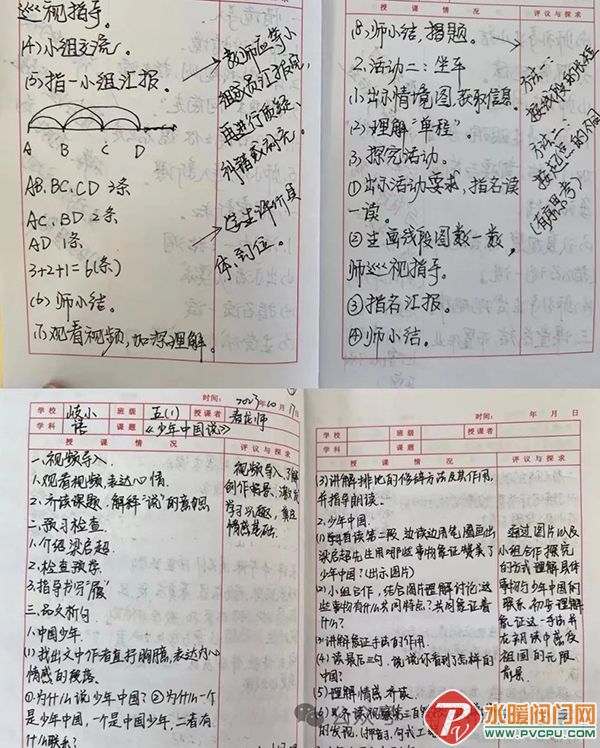 巡视指导。
(4)小组交流。
(5)指一小组汇报。
A B C D
AB、BC、CD 3条
AC、BD 2条
AD 1条
3+2+1=6(条)
(6)师小结。
(7)观看视频,加深理解。
教师应等小
组成员汇报完,
再进行质疑、
纠错或补充。
学生评价具
体、到位。
评议与探求
(8)师小结,揭题。
2.活动二:坐车
(1)出示情境图,获取信息。
(2)理解“单程”。
3、探究活动。
①出示活动要求,指名读
一读。
②生画线段图数一数,
师巡视指导。
③指名汇报。
④师小结。
方法一:
方法二:
时间: 2023年10月17日
学校 岐小 班级 五(1) 授课者
学科 语 课题 《少年中国说》
授课情况 评议与探求
一、视频导入
1.观看视频,表达心情。
2.齐读课题,解释“说”的意思。
二、预习检查
1.介绍梁启超
2.检查预习
3.指导书写“履”
三、品文析句
1.中国少年
(1)找出文中作者直抒胸臆,表达内心
情感的段落
①为什么说少年中国?②为什么一个
是少年中国,一个是中国少年,二者有
什么联系?
视频导入,了解
创作背景、激发
学习兴趣,奠定
情感基础。
时间: 年 月 日
学校 班级 授课者
学科 课题
授课情况 评议与探求
(3)讲解排比的修辞方法及其作用,
并指导朗读。
2.少年中国
(1)自读第二段,边读边用笔圈画出
梁启超先生用哪些事物象征赞美了
少年中国?(出示图片)
(2)小组合作,结合图片理解讨论:这
些事物有什么共同特点?共同象征着
什么?
(3)讲解象征手法的作用
(4)读最后三句,说说你看到了怎样的中
国?
(5)理解情感,齐读
的发现。
通过图片以及
小组合作探究
的方式理解具体
事物与少年中国的
联系,初步理解
象征这一手法并
在朗读中激发
祖国的无限
前景。
水暖阀门网
WWW.PVCPU.COM